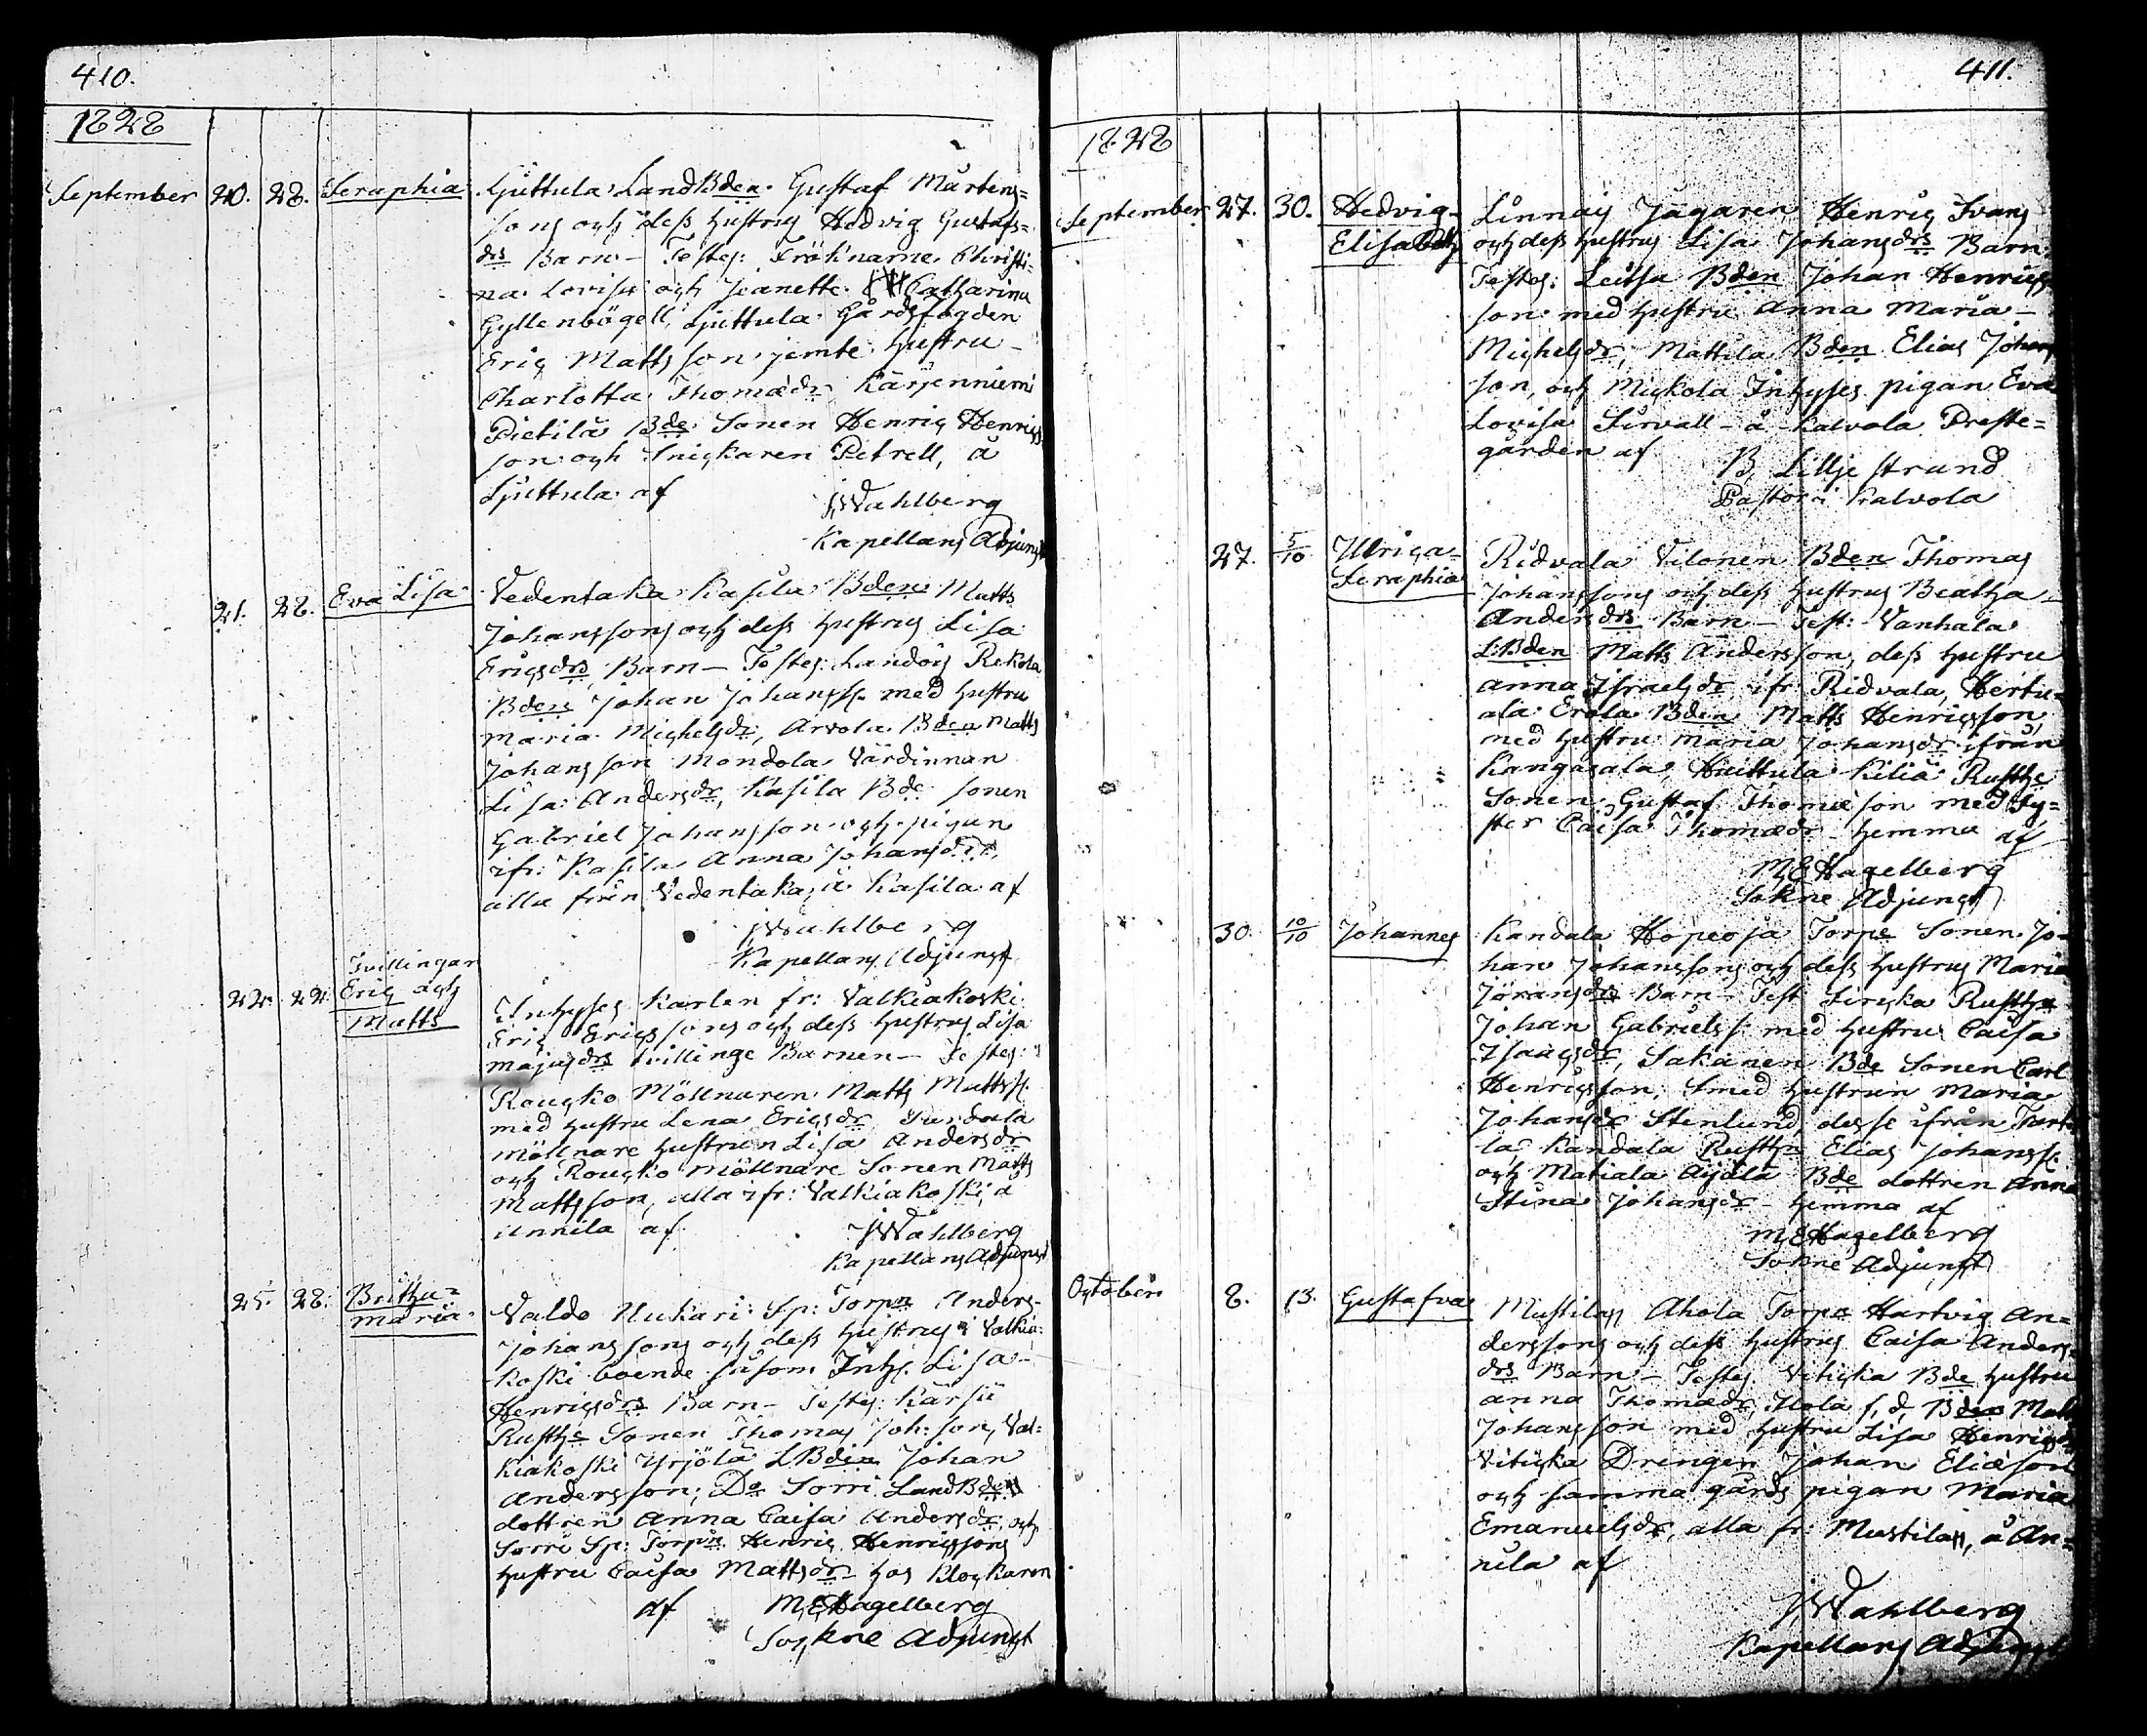 410.
1828
September 20. 28. Seraphia Ljuttula LandBden Gustaf Mårtens=
sons och dess hustrus Hedvig Gustafs=
drs Barn – Testes: Fröknarne Christi=
na Lovisa och Jeanette Catharina
Gyllenbögell, Ljuttula Gårdsfogden
Eric Mattsson jemte hustru
Charlotta Thomædr, Kärjenniemi
Pietilä Bde Sonen Henric Henrics
son och Snickaren Petrell, å
Ljuttula af
J Wahlberg
Kapellans Adjunct
21. 28. Eva Lisa Vedentaka Kasila Bden Matts
Johanssons och dess hustrus Lisa
Ericsdrs Barn – Testes: Landòis Rekola
Bden Johan Johanss. med hustru
Maria Michelsdr, Arvola Bden Matts
Johansson Mondola Värdinnan
Lisa Andersdr, Kasila Bde sonen
Gabriel Johansson och pigan
ifr: Kasila Anna Johansdr,
alla från Vedentaka, å Kasila af
J Wahlberg
Kapellans Adjunct
Tvillingar
22. 22. Eric och
Matts
Inhyses Karlen fr: Valkiakoski
Eric Ericssons och dess hustrus Lisa
Majusdrs tvillinge Barnen – Testes:
Roucko Möllnaren Matts Mattss.
med hustru Lena Ericsdr
möllnare hustrun Lisa Andersdr
och Roucko möllnare Sonen Matts
Mattsson, alla ifr: Valkiakoski, å
Annila af
J Wahlberg
Kapellans Adjunct
25. 28. Britha=
Maria
Valdo Uukari Sp: Torpn Anders
Johanssons och dess hustrus i Valkia=
koski boende såsom Inhs. Lisa
Henricsdrs Barn – Testes: Kärsä
Rusths Sonen Thomas Joh:son, Val=
kiakoski Yrjölä LBden Johan
Andersson, Do Sorri LandBden
dottren Anna Caisa Andersdr, och
Sorri Sp: Torpn Henric Henricssons
hustru Caisa Mattsdr – hos Klockaren
af M E Hagelberg
Sockne Adjunct
411.
1828
September 27. 30. Hedvig
Elisabeth
Linnais Jägaren Henric Svans
och dess hustrus Lisa Johansdrs Barn
Testes: Leitsa Bden Johan Henrics
son med hustru Anna Maria
Michelsdr, Mattila Bden Elias Johans
son, och Muckola Inhyses pigan Eva
Lovisa Sirvall – å Kalvola Preste=
gården af
B Lilljestrand
Pastor i Kalvola
27. 5/10 Ulrica=
Seraphia
Ridvala Vilonen Bden Thomas
Johanssons och dess hustrus Beatha
Andersdrs Barn – Test: Vanhala
LBden Matts Andersson, dess hustru
Anna Israelsdr ifr Ridvala, Hertu=
ala Erola Bden Matts Henricsson,
med hustru Maria Johansdr ifrån
Kangasala, Huittula Kiliä Rusths
Sonen Gustaf Thomæson med Sy=
ster Caisa Thomædr – hemma af
M E Hagelberg
Sokne Adjunct
30. 10/10 Johannes Kandala Hopeoja Torpe Sonen Jo=
han Johanssons och dess hustrus Maria
Jöransdrs Barn – Test Sircka Rusth
Johan Gabrielss. med hustru Caisa
Isaacsdr, Sakanen Bde Sonen Carl
Henricsson, Smed hustrun Maria
Johansdr Stenlund, desse ifrån Tart
la Kandala Rusthn Elias Johanss.
och Matiala Äijälä Bde dottren Anna
Stina Johansdr – hemma af
M E Hagelberg
Sokne Adjunct
October 8. 13. Gustafva Mustilan Ahola Torpn Hartvig An=
derssons och dess hustrus Caisa Anders
drs Barn – Testes. Viticka Bde hustru
Anna Thomædr, Ilola f. d. Bden Matts
Johansson med hustru Lisa Henricsdr
Viticka Drengen Johan Eliæson
och samma gårds pigan Maria
Emanuelsdr, alla fr: Mustilan, å An=
nila af
J Wahlberg
Kapellans Adjunct